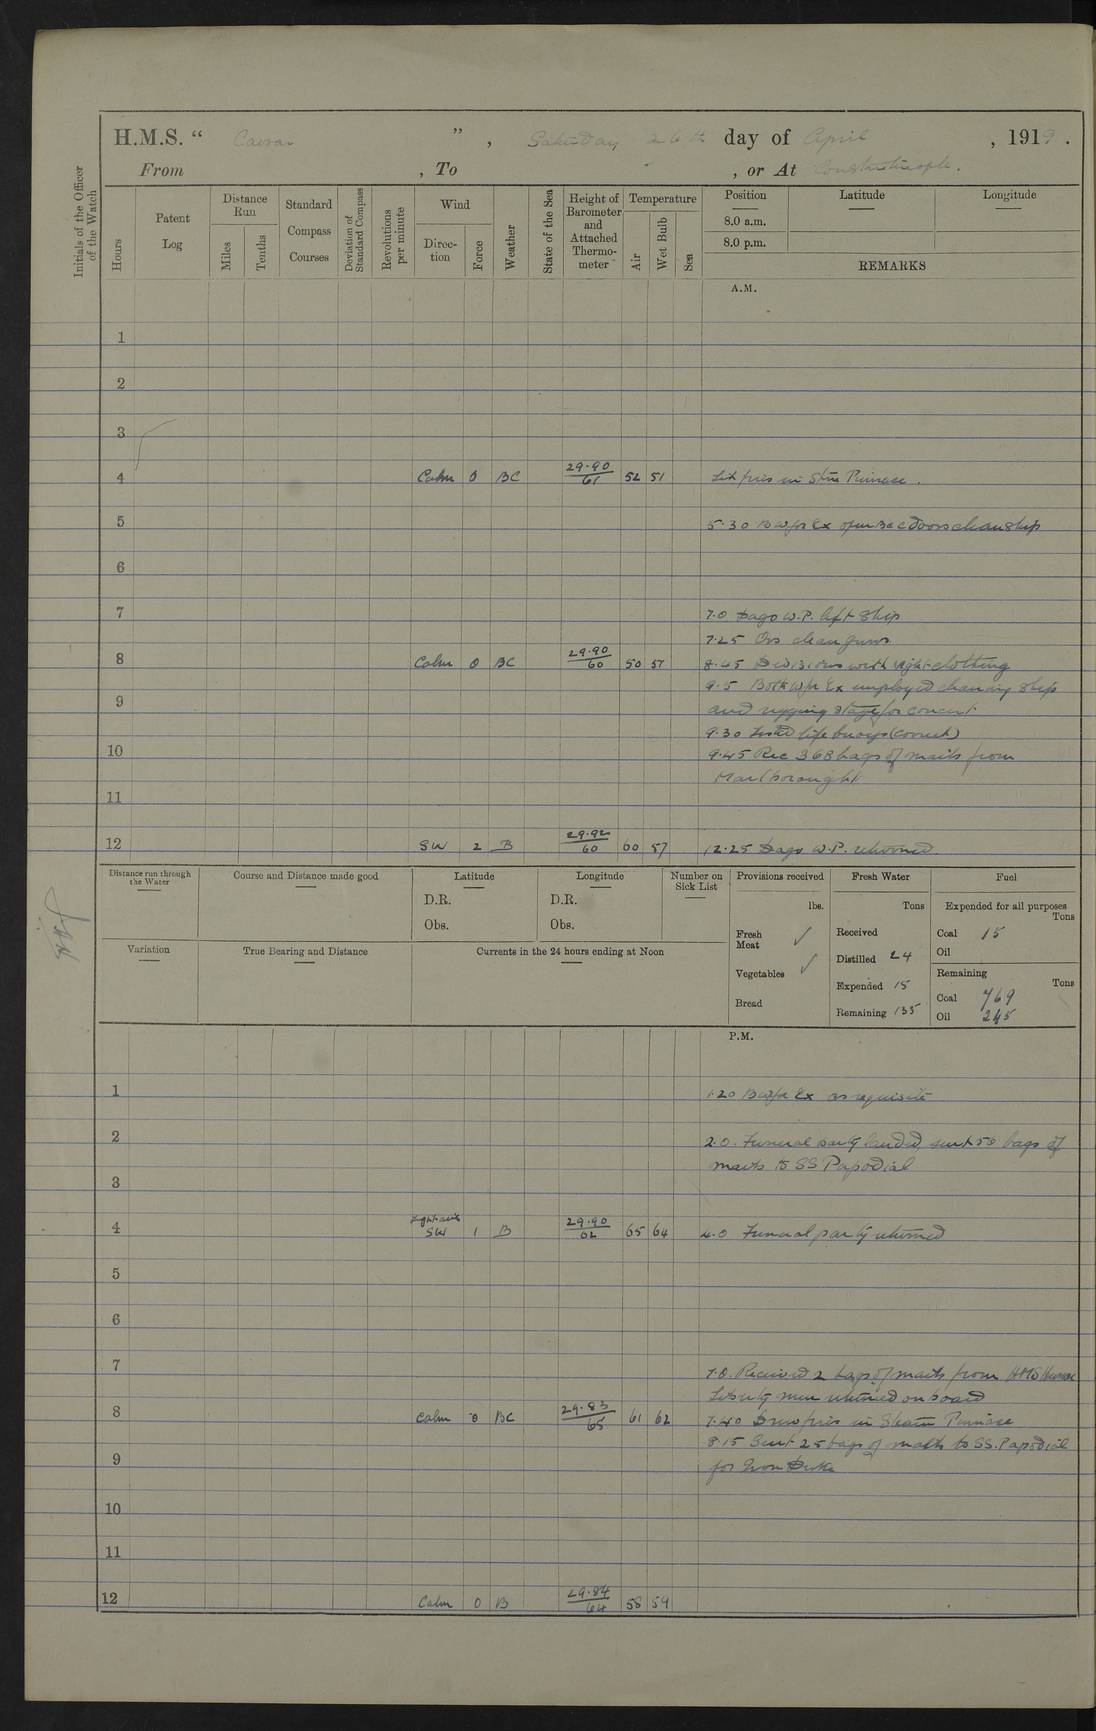 H.M.S. " Caesar ", Saturday 26th day of April, 1919.
From , To , or At Constantinople.
Initials of the Officer of the Watch
Hours
Patent Log
Distance Run
Miles
Tenths
Standard Compass Courses
Deviation of Standard Compass
Revolutions per minute
Wind
Direction
Force
Weather
State of the Sea
Height of Barometer and Attached Thermometer
Temperature
Air
Wet Bulb
Sea
Position
8.0 a.m.
8.0 p.m.
Latitude
Longitude
REMARKS
A.M.
1
2
3
4 Calm 0 BC 29.90/61 52 51 Lit fires in Stm Pinnace.
5 5.30 B W for Ex open B & C doors clean ship
6
7 7.0 Dago W.P. left ship
7.25 Co's clean guns
8 Calm 0 BC 29.90/60 50 51 8.45 Divisions with night clothing
9.5 Both W for Ex employed cleaning ship
9 and rigging stage for concert
9.30 life buoys (correct)
10 9.45 Rec 368 bags of mails from
Marlborough
11
12 SW 2 B 29.92/60 60 57 12.25 Dago W.P. returned.
Distance run through the Water
Course and Distance made good
Latitude
D.R.
Obs.
Longitude
D.R.
Obs.
Number on Sick List
Provisions received
lbs.
Fresh Meat ✓
Vegetables ✓
Bread
Fresh Water
Tons
Received
Distilled 24
Expended 15
Remaining 135
Fuel
Expended for all purposes
Tons
Coal 15
Oil
Remaining
Tons
Coal 769
Oil 245
Variation
True Bearing and Distance
Currents in the 24 hours ending at Noon
P.M.
1 1.20 B W for Ex as requisite
2 2.0 Funeral party landed, sent 50 bags of
mails to SS Papodial
3
4 Light airs SW 1 B 29.90/62 65 64 4.0 Funeral party returned
5
6
7 7.0. Received 2 bags of mails from HMS
Liberty men returned on board
8 Calm 0 BC 29.83/65 61 62 7.40 Drew fires in Steam Pinnace
8.15 Sent 25 bags of mails to SS. Papodial
9 for Iron Duke
10
11
12 Calm 0 B 29.84/64 58 59